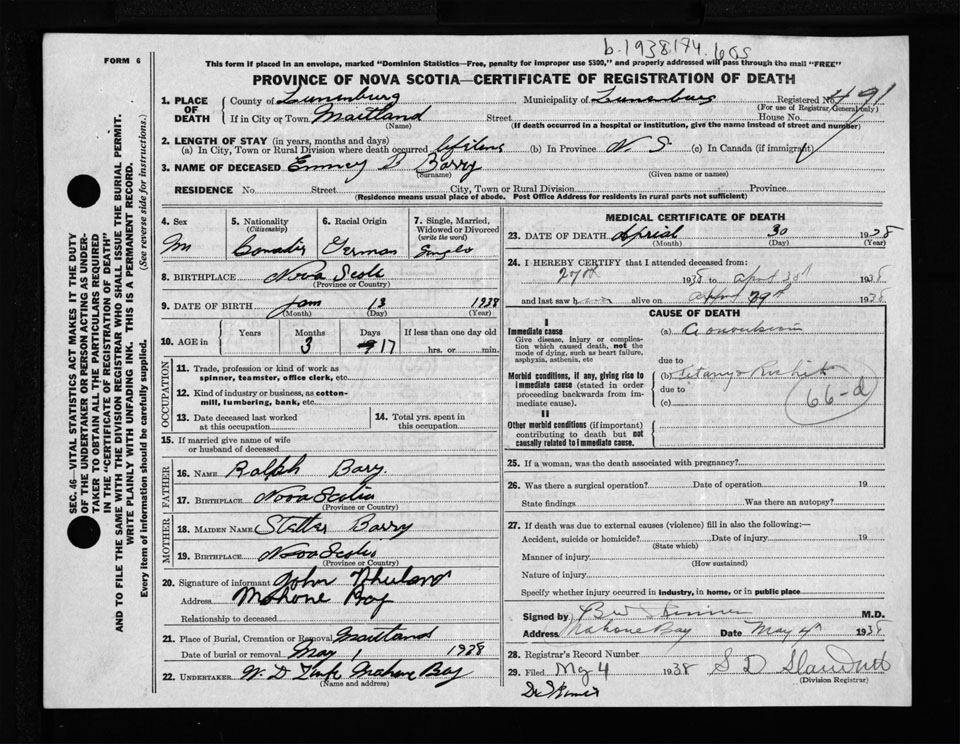 b.1938 174.605
FORM 6
This form if placed in an envelope, marked "Dominion Statistics—Free, penalty for improper use $300," and properly addressed will pass through the mail "FREE"
PROVINCE OF NOVA SCOTIA—CERTIFICATE OF REGISTRATION OF DEATH
SEC. 46—VITAL STATISTICS ACT MAKES IT THE DUTY
OF THE UNDERTAKER OR PERSON ACTING AS UNDER-
TAKER TO OBTAIN ALL THE PARTICULARS REQUIRED
IN THE "CERTIFICATE OF REGISTRATION OF DEATH"
AND TO FILE THE SAME WITH THE DIVISION REGISTRAR WHO SHALL ISSUE THE BURIAL PERMIT.
WRITE PLAINLY WITH UNFADING INK. THIS IS A PERMANENT RECORD.
Every item of information should be carefully supplied. (See reverse side for instructions.)
1. PLACE OF DEATH County of Lunenburg Municipality of Lunenburg Registered No. 491
(For use of Registrar General only)
If in City or Town Maitland Street House No.
(Name) (If death occurred in a hospital or institution, give the name instead of street and number)
2. LENGTH OF STAY (in years, months and days)
(a) In City, Town or Rural Division where death occurred lifetime (b) In Province N. S. (c) In Canada (if immigrant)
3. NAME OF DECEASED Emmey D Barry
(Surname) (Given name or names)
RESIDENCE No. Street City, Town or Rural Division Province
(Residence means usual place of abode. Post Office Address for residents in rural parts not sufficient)
4. Sex 5. Nationality 6. Racial Origin 7. Single, Married,
(Citizenship) Widowed or Divorced
(write the word)
M German Single
8. BIRTHPLACE Nova Scotia
(Province or Country)
9. DATE OF BIRTH Jan 13 1938
(Month) (Day) (Year)
10. AGE in Years Months Days If less than one day old
3 17 hrs. or min.
OCCUPATION
11. Trade, profession or kind of work as
spinner, teamster, office clerk, etc.
12. Kind of industry or business, as cotton-
mill, lumbering, bank, etc.
13. Date deceased last worked
at this occupation
14. Total yrs. spent in
this occupation
15. If married give name of wife
or husband of deceased
FATHER
16. NAME Ralph Bary
17. BIRTHPLACE Nova Scotia
(Province or Country)
MOTHER
18. MAIDEN NAME Barry
19. BIRTHPLACE Nova Scotia
(Province or Country)
20. Signature of informant John
Address Mahone Bay
Relationship to deceased
21. Place of Burial, Cremation or Removal Maitland
Date of burial or removal May 1 1938
22. UNDERTAKER W. D. Mahone Bay
(Name and address)
MEDICAL CERTIFICATE OF DEATH
23. DATE OF DEATH April 30 1938
(Month) (Day) (Year)
24. I HEREBY CERTIFY that I attended deceased from:
1938 to April 1938
and last saw h alive on April 29th 1938
CAUSE OF DEATH
I
Immediate cause (a) Convulsion
Give disease, injury or complica-
tion which caused death, not the
mode of dying, such as heart failure,
asphyxia, asthenia, etc
due to
Morbid conditions, if any, giving rise to (b) Tetany
immediate cause (stated in order due to
proceeding backwards from im- (c)
mediate cause).
66-d
II
Other morbid conditions (if important)
contributing to death but not
causally related to immediate cause.
25. If a woman, was the death associated with pregnancy?
26. Was there a surgical operation? Date of operation 19
State findings Was there an autopsy?
27. If death was due to external causes (violence) fill in also the following:—
Accident, suicide or homicide? Date of injury 19
(State which)
Manner of injury
(How sustained)
Nature of injury
Specify whether injury occurred in industry, in home, or in public place
Signed by M.D.
Address Mahone Bay Date May 4 1938
28. Registrar's Record Number
29. Filed May 4 1938 S D
(Division Registrar)